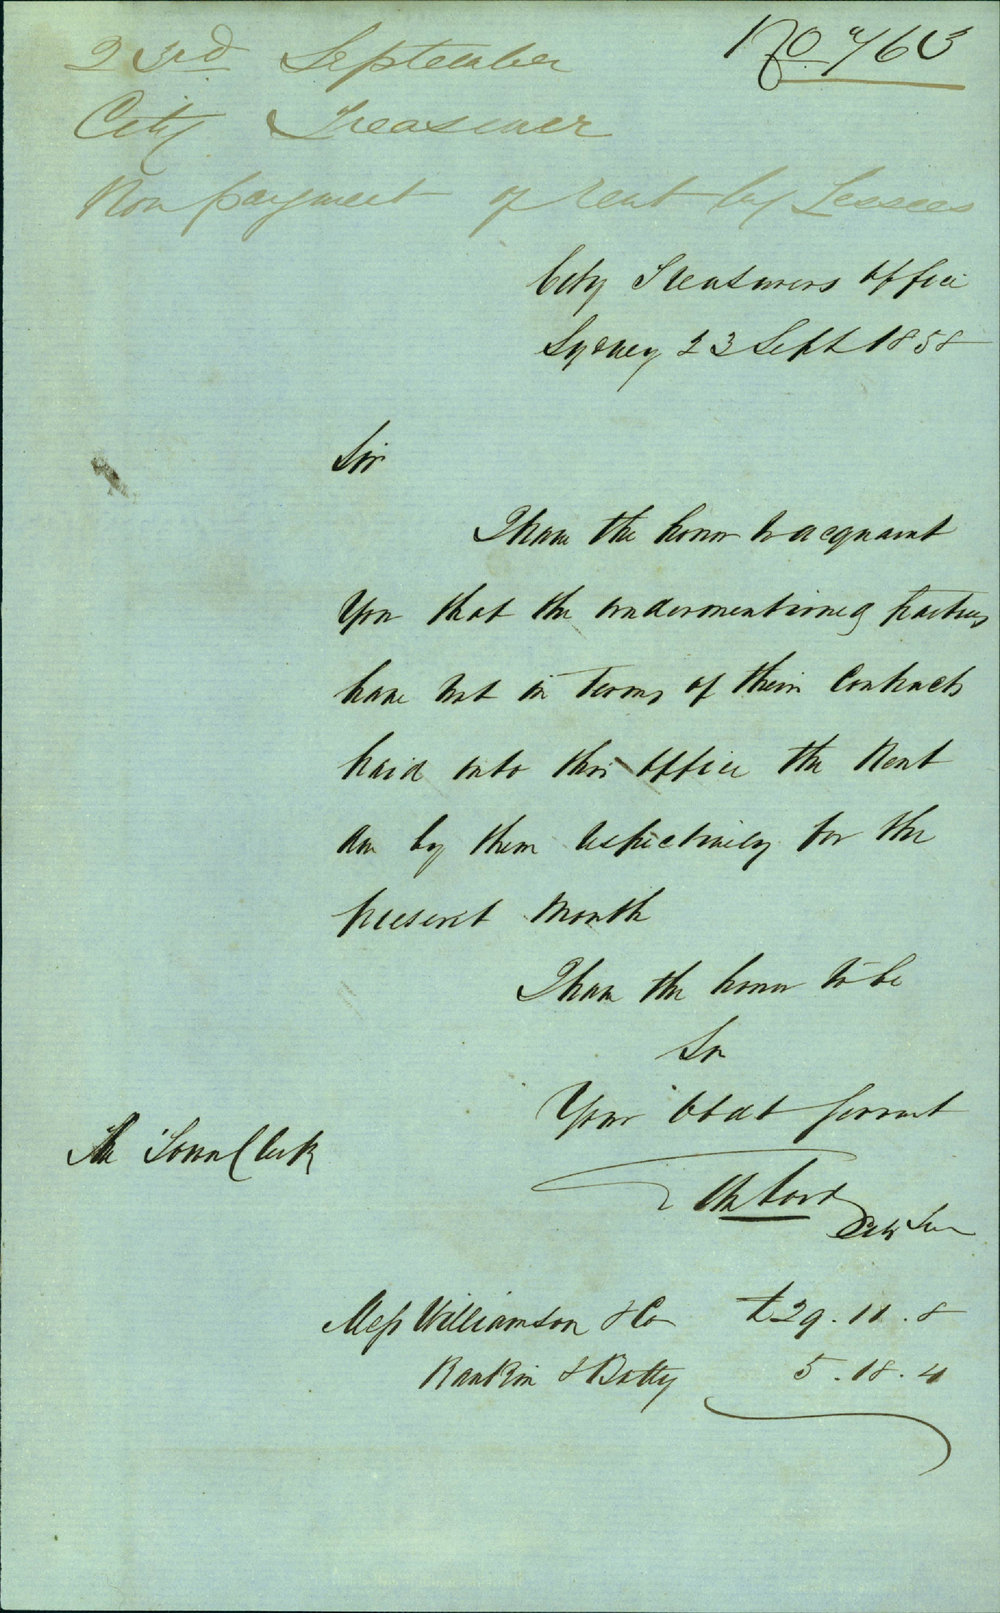 No 763
23rd September
City Treasurer
Non payment of rent by Lessees
City Treasurers Office
Sydney 23 Sept 1858
Sir
I have the honor to acquaint
You that the undermentioned parties
have not in terms of their Contracts
paid into this office the Rent
due by them respectively for the
present Month
I have the honor to be
Sir
Your obdt servant
City Trea
The Town Clerk
Mess Williamson & Co £29.11.8
Rankin & Batty 5.18.4